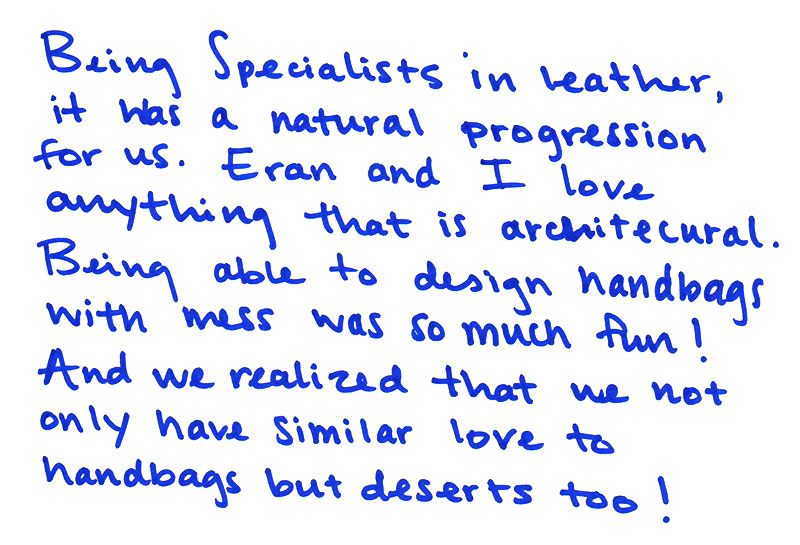 Being Specialists in leather,
it was a natural progression
for us. Eran and I love
anything that is architecural.
Being able to design handbags
with mess was so much fun!
And we realized that we not
only have similar love to
handbags but deserts too!